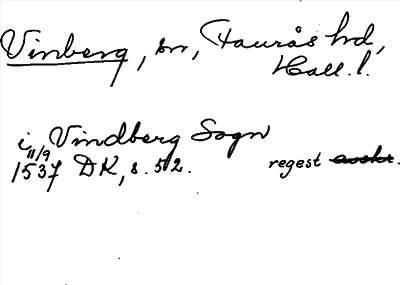 Vinberg, sn, Faurås hd,
Hall. l.
i Vindberg Sogn
11/9
1537 DK, s. 52. regest avskr.